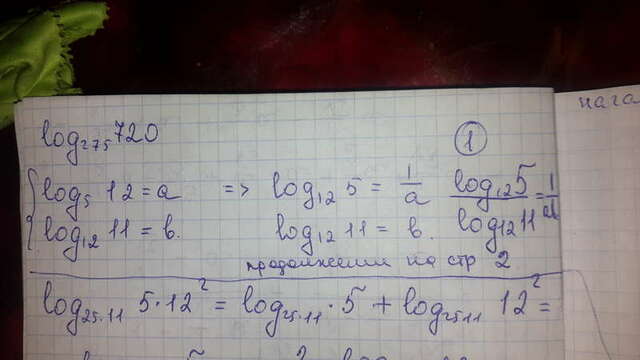 нага
log₂₇₅ 720
①
log₅ 12 = a => log₁₂ 5 = 1/a log₁₂ 5 / log₁₂ 11 = 1/ab
log₁₂ 11 = b. log₁₂ 11 = b.
продолжении на стр 2
log₂₅.₁₁ 5·12² = log₂₅.₁₁ · 5 + log₂₅.₁₁ 12² =